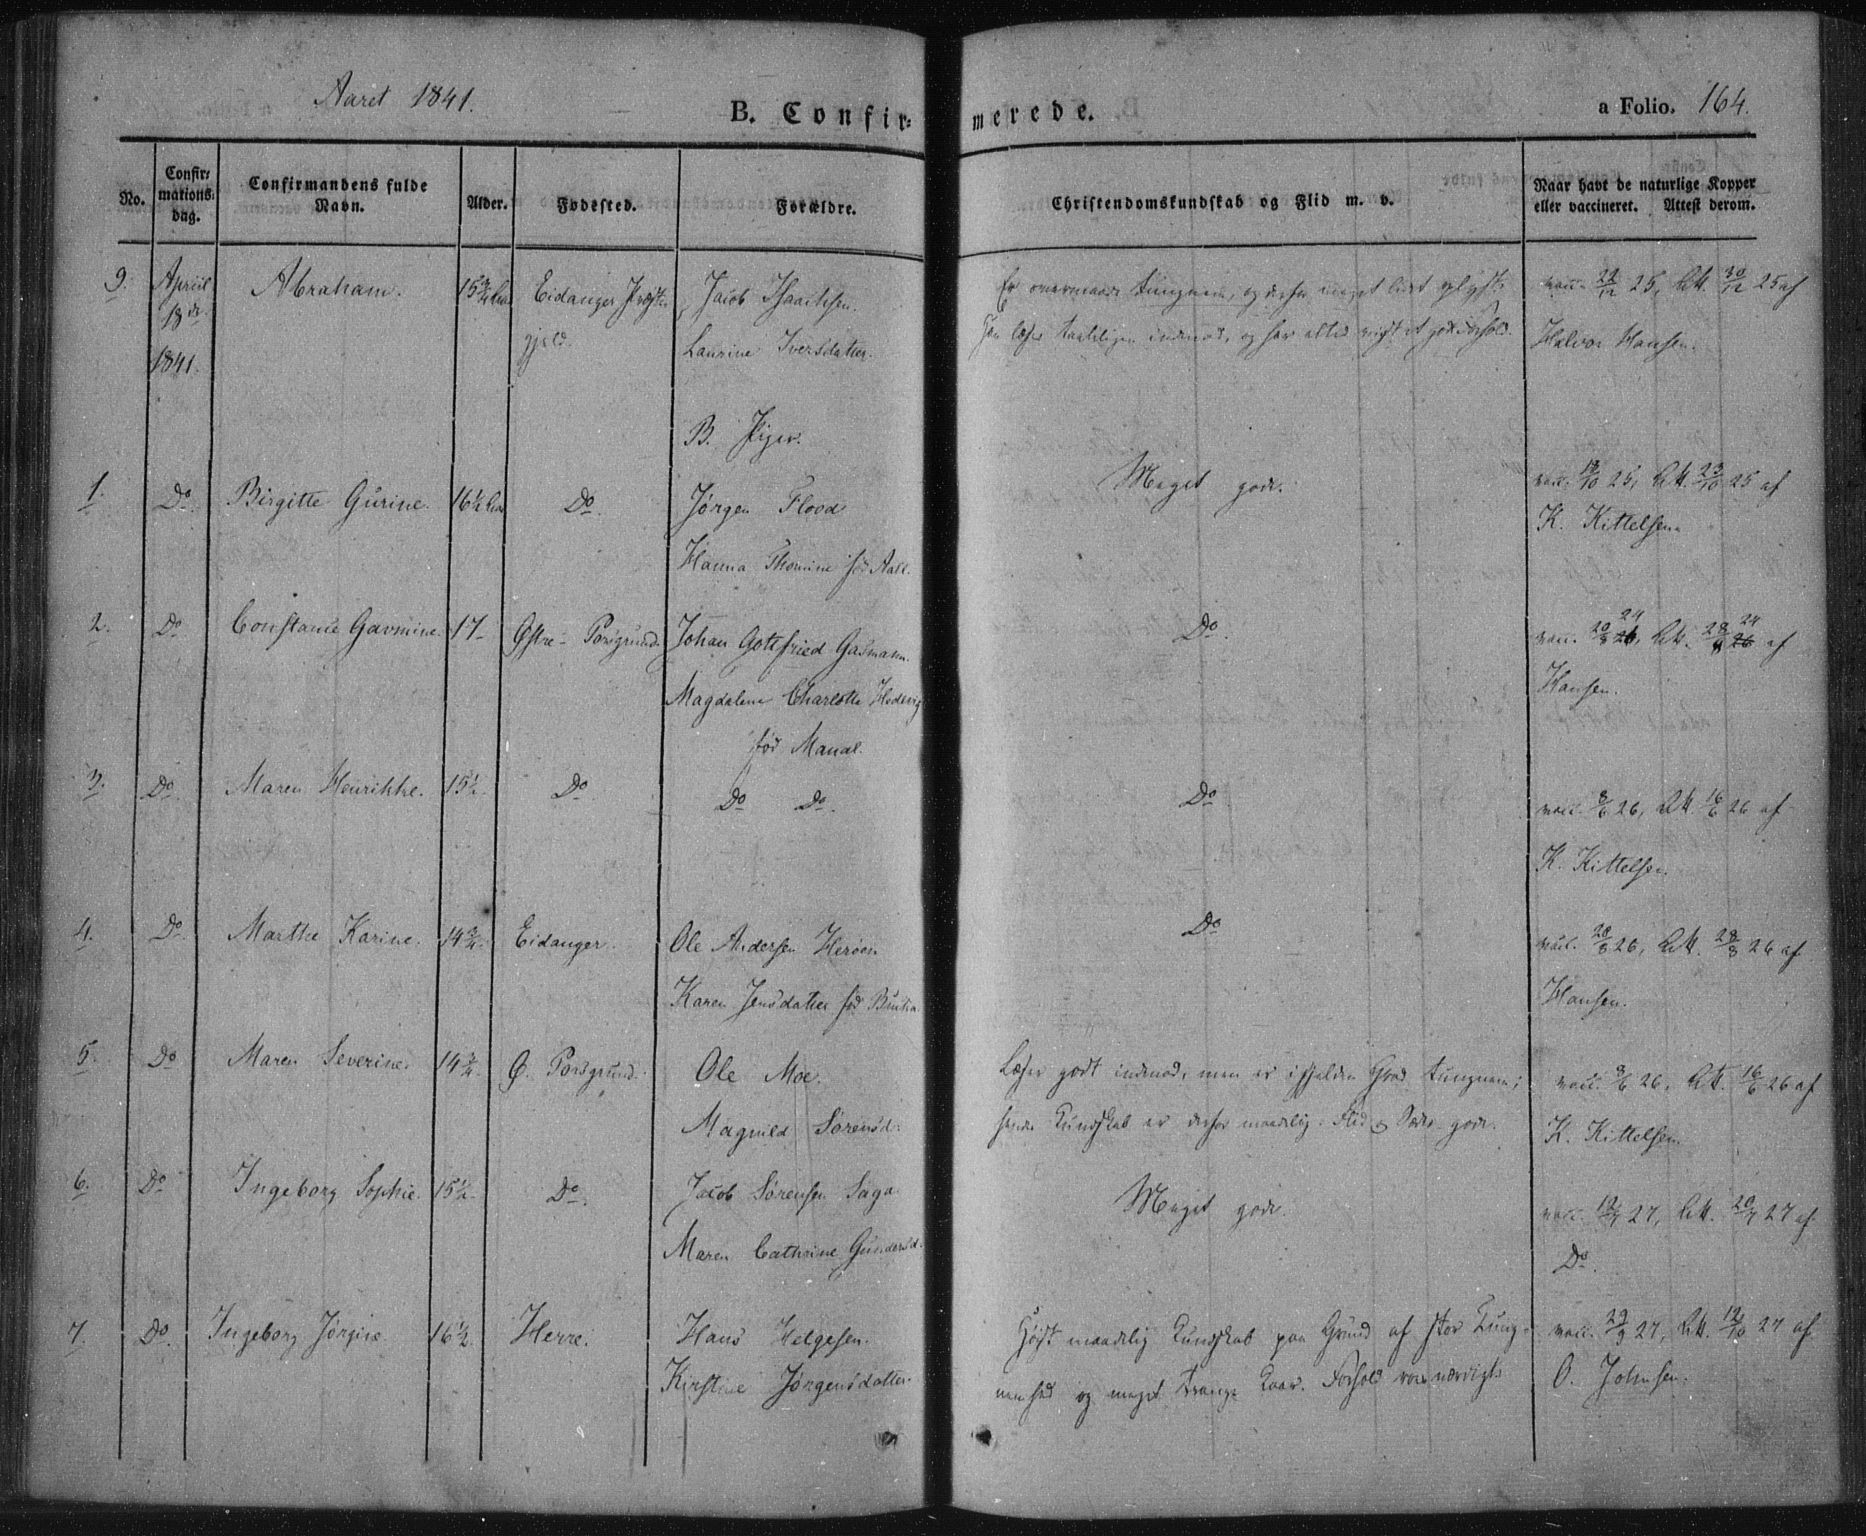 Aaret 1841.
B. Confirmerede.
a Folio. 164.
No. Confirmations dag. Confirmandens fulde Navn. Alder. Fødested. Forældre. Christendomskundskab og Flid m. v. Naar havt de naturlige Kopper eller vaccineret. Attest derom.
9. April 18de 1841. Abraham. 15 3/4 Eidanger Præste-
gjeld.
Jacob Isaachsen.
Laurine Iversdatter.
Er overmaade tungnem, og derfor meget lidet oplyst.
Han læser taaleligen indenad, og har altid viist et godt Forhold.
vacc. 22/12 25, Att. 30/12 25 af
Halvor Hansen.
B. Piger.
1. Do. Birgitte Gurine. 16 1/2 Do.
Jørgen Flood
Hanna Thomine fød Aall.
Meget godt.
vacc. 18/10 25, Att. 23/10 25 af
K. Kittelsen.
2. Do Constance Gavmine. 17. Østre Porsgrund.
Johan Gottfried Gasmann.
Magdalene Charlotte Hedevig
fød Manal.
Do
vacc. 20/8 24, Att. 28/8 24 af
Hansen.
3. Do. Maren Henrikke. 15 1/2. Do
Do Do.
Do
vacc. 8/6 26, Att. 16/6 26 af
K. Kittelsen.
4. Do. Marthe Karine. 14 3/4. Eidanger.
Ole Andersen Herøen
Karen Jensdatter fød
Do
vacc. 20/8 26, Att. 28/8 26 af
Hansen.
5. Do Maren Severine. 14 3/4. Ø. Porsgrund.
Ole Moe.
Magnild Sørensd.
Læser godt indenad, men er i sjelden Grad tungnem;
hendes Kundskab er derfor maadelig. Flid og Sæder gode.
vacc. 8/6 26, Att. 16/6 26 af
K. Kittelsen.
6. Do Ingeborg Sophie. 15 1/2. Do.
Jacob Sørensen Saga
Maren Cathrine Gundersd.
Meget godt.
vacc. 12/7 27, Att. 20/7 27 af
Do.
7. Do. Ingeborg Jørgine 16 1/2. Herre.
Hans Helgesen.
Kirstine Jørgensdatter.
Høist maadelig Kundskab paa Grund af stor Tung-
nemhed og meget trange Kaar. Forhold roesværdigt.
vacc. 29/9 27, Att. 12/10 27 af
O. Johnsen.